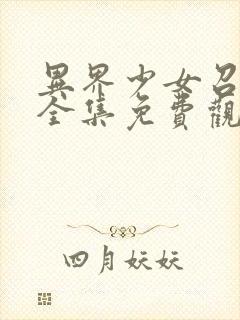 異界少女召
全集免費觀
四月妖妖